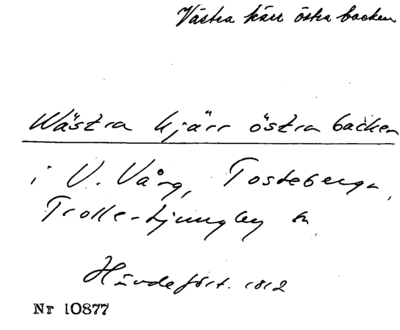 Västra kärr östra backen
Wästra kjärr östra backen
i V. Vång, Tosteberga,
Trolle-Ljungby sn
Hävdefört. 1812
Nr 10877